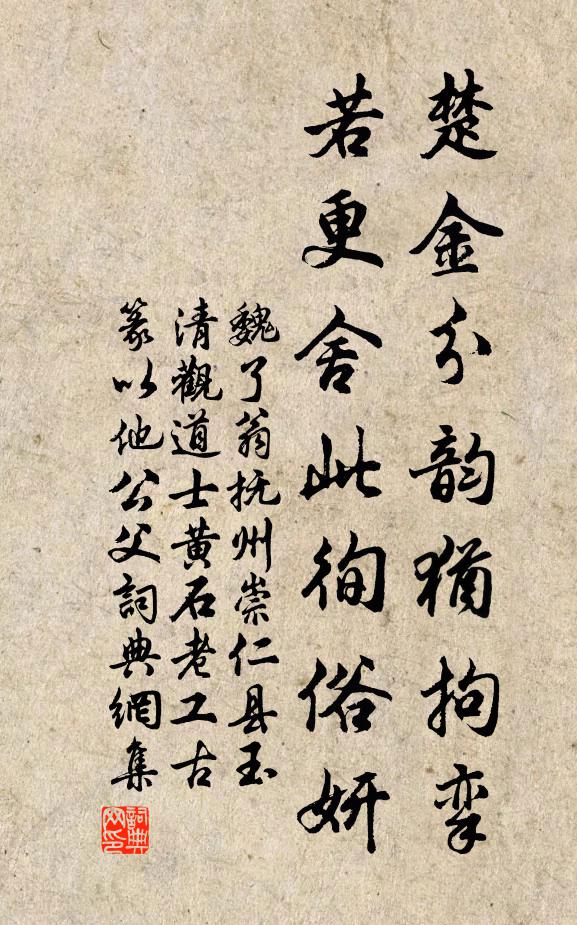 楚金分韵猶拘挛
若更舍此徇俗妍
魏了翁抚州崇仁县玉
清觀道士黄石老工古
篆以他公父詞典網集
詞典網印